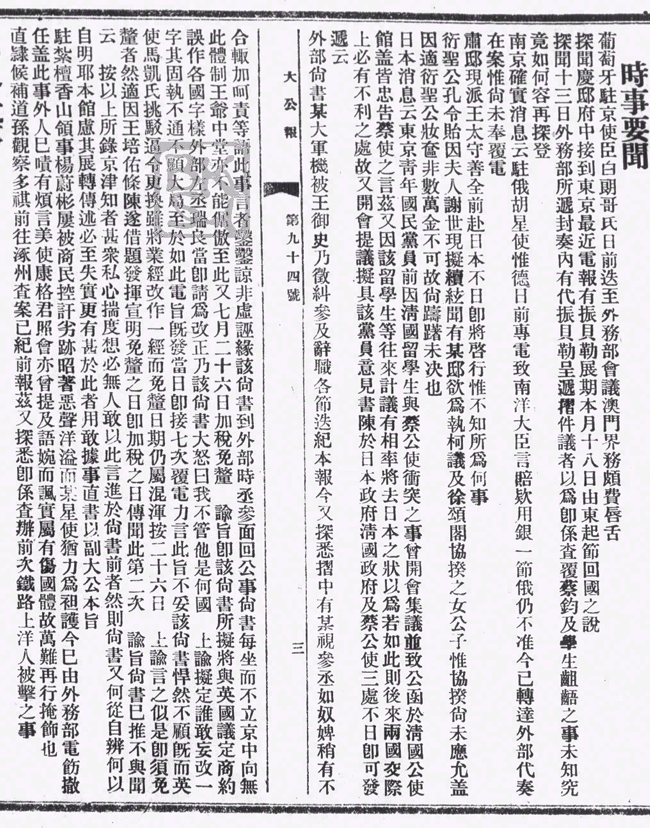 時事要聞
葡萄牙駐京使臣白朗哥氏日前迭至外務部會議澳門界務頗費唇舌
探聞慶邸府中接到東京最近電報有振貝勒展期本月十八日由東起節回國之說
探聞十三日外務部所遞封奏內有代振貝勒呈遞摺件議者以爲卽係查覆蔡鈞及學生齟齬之事未知究
竟如何容再探登
南京確實消息云駐俄胡星使惟德日前專電致南洋大臣言賠欵用銀一節俄仍不准今已轉達外部代奏
在案惟尙未奉覆電
肅邸現派王太守善全前赴日本不日卽將啓行惟不知所爲何事
衍聖公孔令貽因夫人謝世現擬續絃聞有某邸欲爲執柯議及徐頌閣協揆之女公子惟協揆尙未應允盖
因適衍聖公妝奩非數萬金不可故尙躊躇未决也
日本消息云東京靑年國民黨員前因清國留學生與蔡公使衝突之事曾開會集議並致公函於清國公使
館盖皆忠吿蔡使之言茲又因該留學生等往來計議有相率將去日本之狀以爲若如此則後來兩國交際
上必有不利之處故又開會提議擬具該黨員意見書陳於日本政府淸國政府及蔡公使三處不日卽可發
遞云
外部尙書某大軍機被王御史乃徵糾參及辭職各節迭紀本報今又探悉摺中有某視參丞如奴婢稍有不
大公報
第九十四號
三
合輒加呵責等語此事言者鑿鑿諒非虛誣緣該尙書到外部時丞參面回公事尙書每坐而不立京中向無
此體制王爺中堂亦不能倨傲至此又七月二十六日加稅免釐 諭旨卽該尙書所擬將與英國議定商約
誤作各國字樣外部左丞瑞良當卽請爲改正乃該尙書大怒曰我不管他是何國 上諭擬定誰敢妄改一
字其固執不通不顧大局至於如此電旨旣發當日卽接七次覆電力言此旨不妥該尙書悍然不顧旣而英
使馬凱氏挑駁逼令更換雖將業經改作一經而免釐日期仍屬混渾按二十六日 上諭言之似是卽須免
釐者然適因王培佑條陳遂借題發揮宣明免釐之日卽加稅之日傳聞此第二次 諭旨尙書已推不與聞
云 按以上所錄京津知者甚衆私心揣度想必無人敢以此言進於尙書前者然則尙書又何從自辨何以
自明耶本館慮其展轉傳述必至失實更有甚於此者用敢據事直書以副大公本旨
駐紮檀香山領事楊蔚彬屢被商民控訐劣跡昭著惡聲洋溢而某星使猶力爲袒護今已由外務部電飭撤
任盖此事外人已嘖有煩言美使康格君照會亦曾提及語婉而諷實屬有傷國體故萬難再行掩飾也
直隸候補道孫觀察多祺前往涿州査案已紀前報茲又探悉卽係査辦前次鐵路上洋人被擊之事